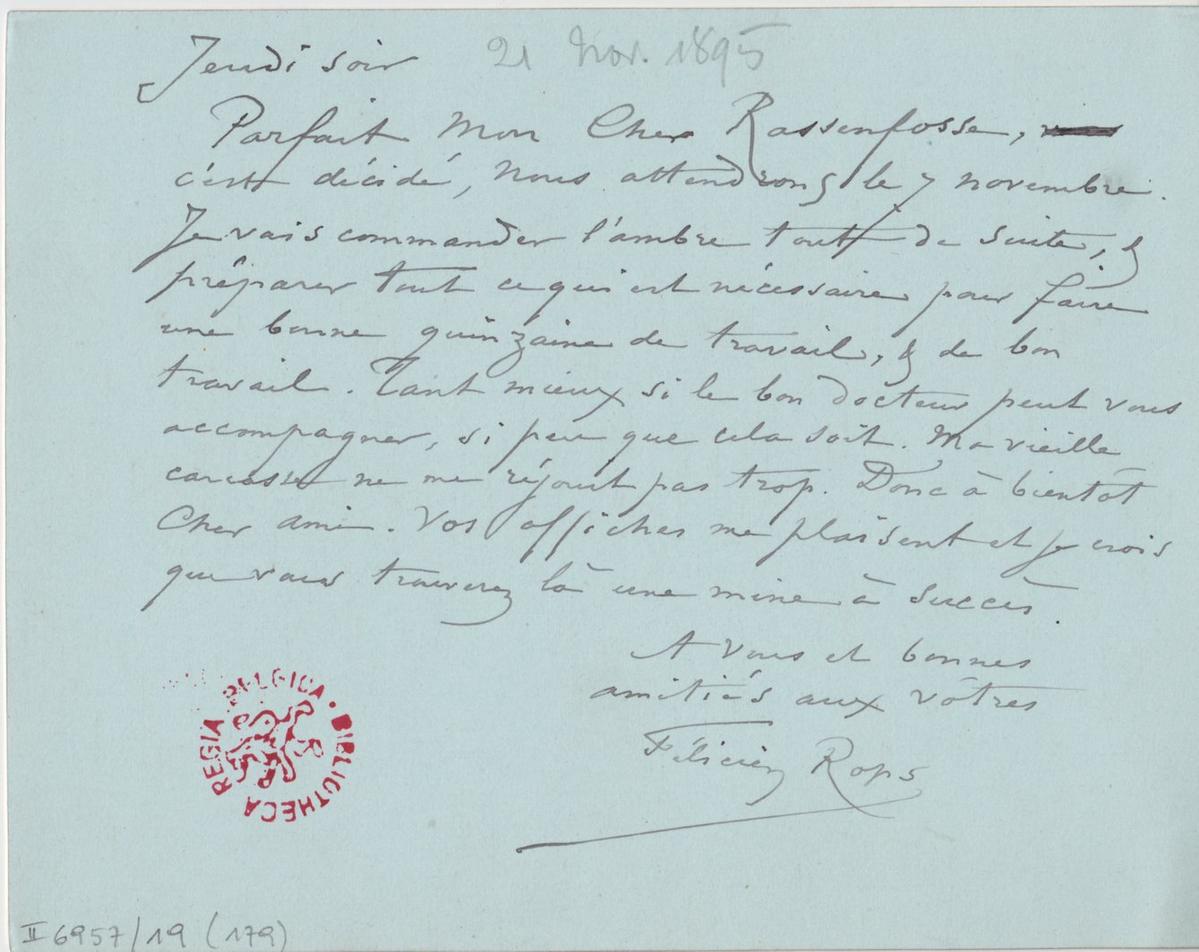 Jeudi soir 21 Nov. 1895
Parfait Mon Cher Rassenfosse,
c'est décidé, Nous attendrons le 7 novembre.
Je vais commander l'ambre tout de suite, &
préparer tout ce qui est nécessaire pour faire
une bonne quinzaine de travail, & de bon
travail. Tant mieux si le bon docteur peut vous
accompagner, si peu que cela soit. Ma vieille
carcasse ne me réjouit pas trop. Donc à bientôt
Cher ami. Vos affiches me plaisent et je crois
que vous trouverez là une mine à succès.
A Vous et bonnes
amitiés aux vôtres
Félicien Rops
BIBLIOTHECA REGIA BELGICA
II 6957/19 (179)